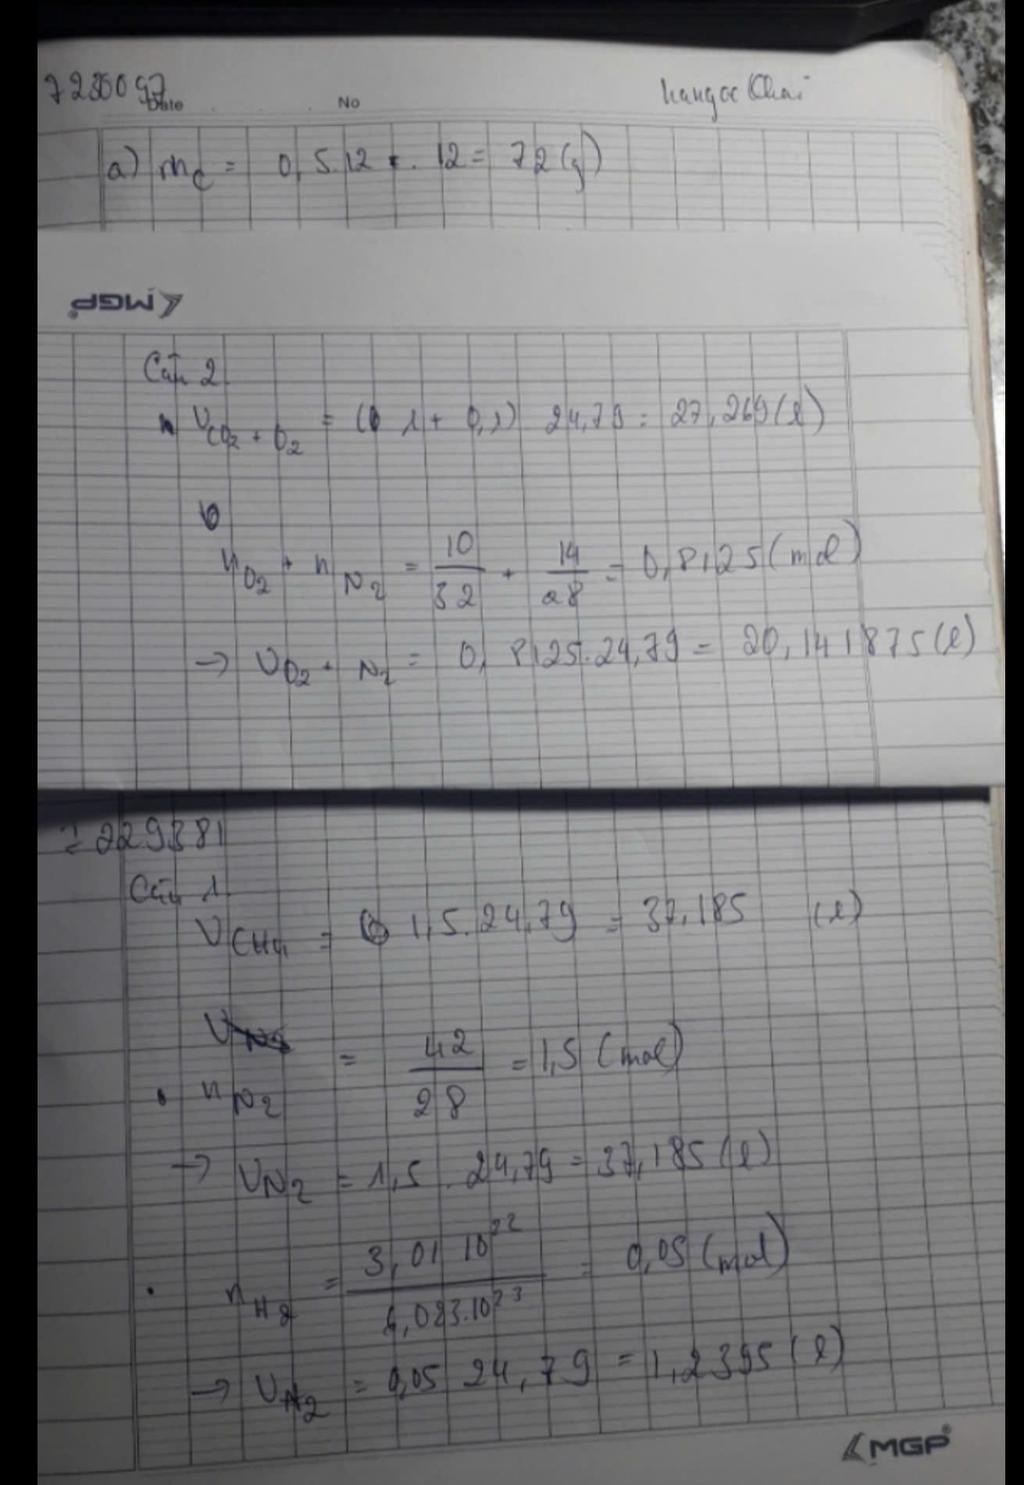 7235097
Date No
a) m_C = 0,5.12 . 12 = 72 (g)
MGP
Câu 2
V_CO2 + O2 = (1 + 0,1) 24,79 = 27,269 (l)
n_O2 + n_N2 = 10/32 + 14/28 = 0,8125 (mol)
→ V_O2 + N2 = 0,8125.24,79 = 20,141875 (l)
= 229381
Câu 1
V_CH4 = 1,5.24,79 = 37,185 (l)
n_N2 = 42/28 = 1,5 (mol)
→ V_N2 = 1,5 . 24,79 = 37,185 (l)
n_H2 = 3,01 10^22 / 6,023.10^23 = 0,05 (mol)
→ V_H2 = 0,05 24,79 = 1,2395 (l)
MGP